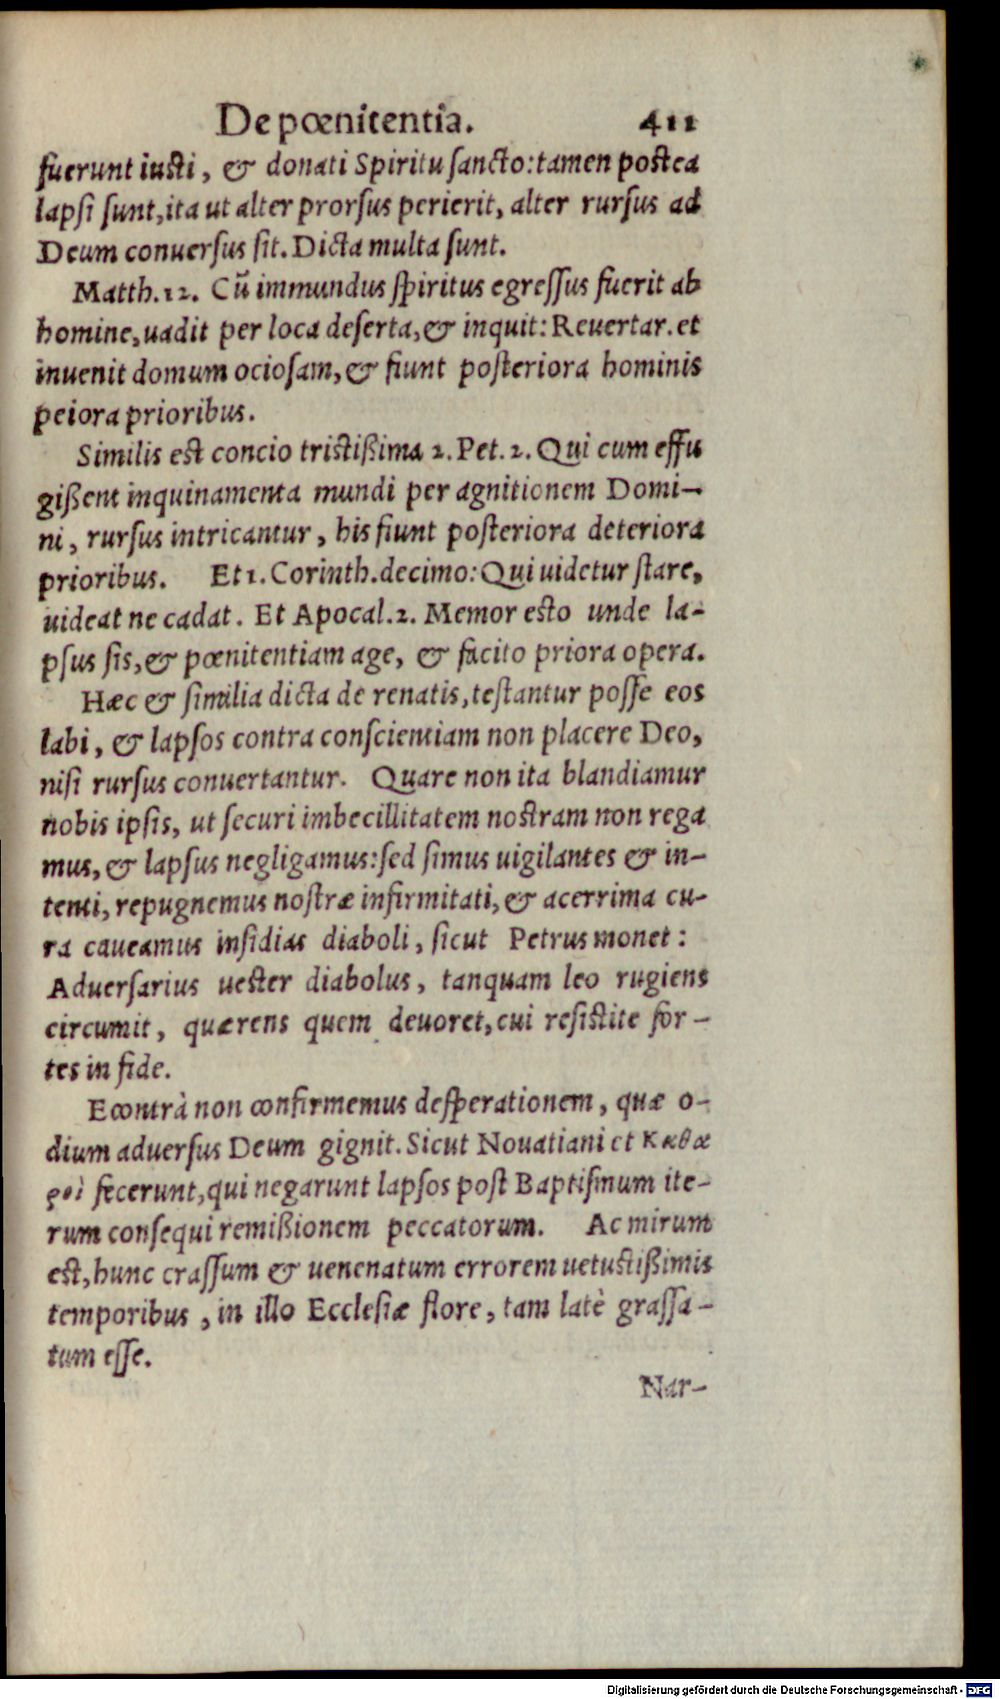 De pœnitentia. 411
fuerunt iusti, & donati Spiritu sancto: tamen postea
lapsi sunt, ita ut alter prorsus perierit, alter rursus ad
Deum conuersus sit. Dicta multa sunt.
Matth. 12. Cũ immundus spiritus egressus fuerit ab
homine, uadit per loca deserta, & inquit: Reuertar. et
inuenit domum ociosam, & fiunt posteriora hominis
peiora prioribus.
Similis est concio tristißima 2. Pet. 2. Qui cum effu
gißent inquinamenta mundi per agnitionem Domi-
ni, rursus intricantur, his fiunt posteriora deteriora
prioribus. Et 1. Corinth. decimo: Qui uidetur stare,
uideat ne cadat. Et Apocal. 2. Memor esto unde la-
psus sis, & pœnitentiam age, & facito priora opera.
Hæc & similia dicta de renatis, testantur posse eos
labi, & lapsos contra conscientiam non placere Deo,
nisi rursus conuertantur. Quare non ita blandiamur
nobis ipsis, ut securi imbecillitatem nostram non rega
mus, & lapsus negligamus: sed simus uigilantes & in-
tenti, repugnemus nostræ infirmitati, & acerrima cu-
ra caueamus insidias diaboli, sicut Petrus monet:
Aduersarius uester diabolus, tanquam leo rugiens
circumit, quærens quem deuoret, cui resistite for-
tes in fide.
Econtrà non confirmemus desperationem, quæ o-
dium aduersus Deum gignit. Sicut Nouatiani et Καθα
ροὶ fecerunt, qui negarunt lapsos post Baptismum ite-
rum consequi remißionem peccatorum. Ac mirum
est, hunc crassum & uenenatum errorem uetustißimis
temporibus, in illo Ecclesiæ flore, tam latè grassa-
tum esse.
Nar-
Digitalisierung gefördert durch die Deutsche Forschungsgemeinschaft - DFG